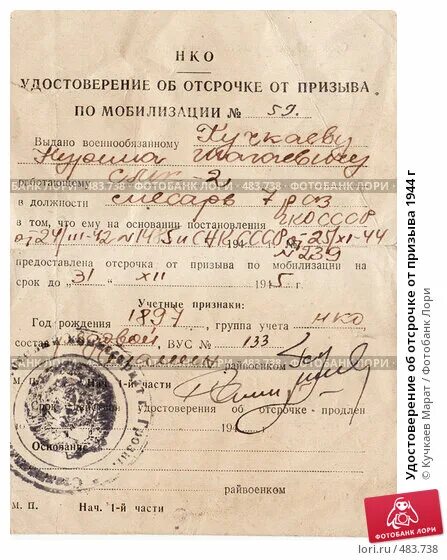 НКО
УДОСТОВЕРЕНИЕ ОБ ОТСРОЧКЕ ОТ ПРИЗЫВА
ПО МОБИЛИЗАЦИИ № 59.
Выдано военнообязанному Кучкаеву
работающему
в должности слесарь 7 раз
в том, что ему на основании постановления ГКОСССР
от 24/III-42 N 1475 и СНК СССР от 25/XI-44
N 239
предоставлена отсрочка от призыва по мобилизации на
срок до „31“ XII 1945 г.
Учетные признаки:
Год рождения 1897, группа учета НКО
состав рядовой, ВУС № 133
райвоенком
М. П. Нач. 1-й части
Срок действия Удостоверения об отсрочке продлен
до 194
Основание
райвоенком
М. П. Нач. 1-й части
ФОТОБАНК ЛОРИ
Удостоверение об отсрочке от призыва 1944 г
© Кучкаев Марат / Фотобанк Лори
ФОТОБАНК ЛОРИ
lori.ru/483738